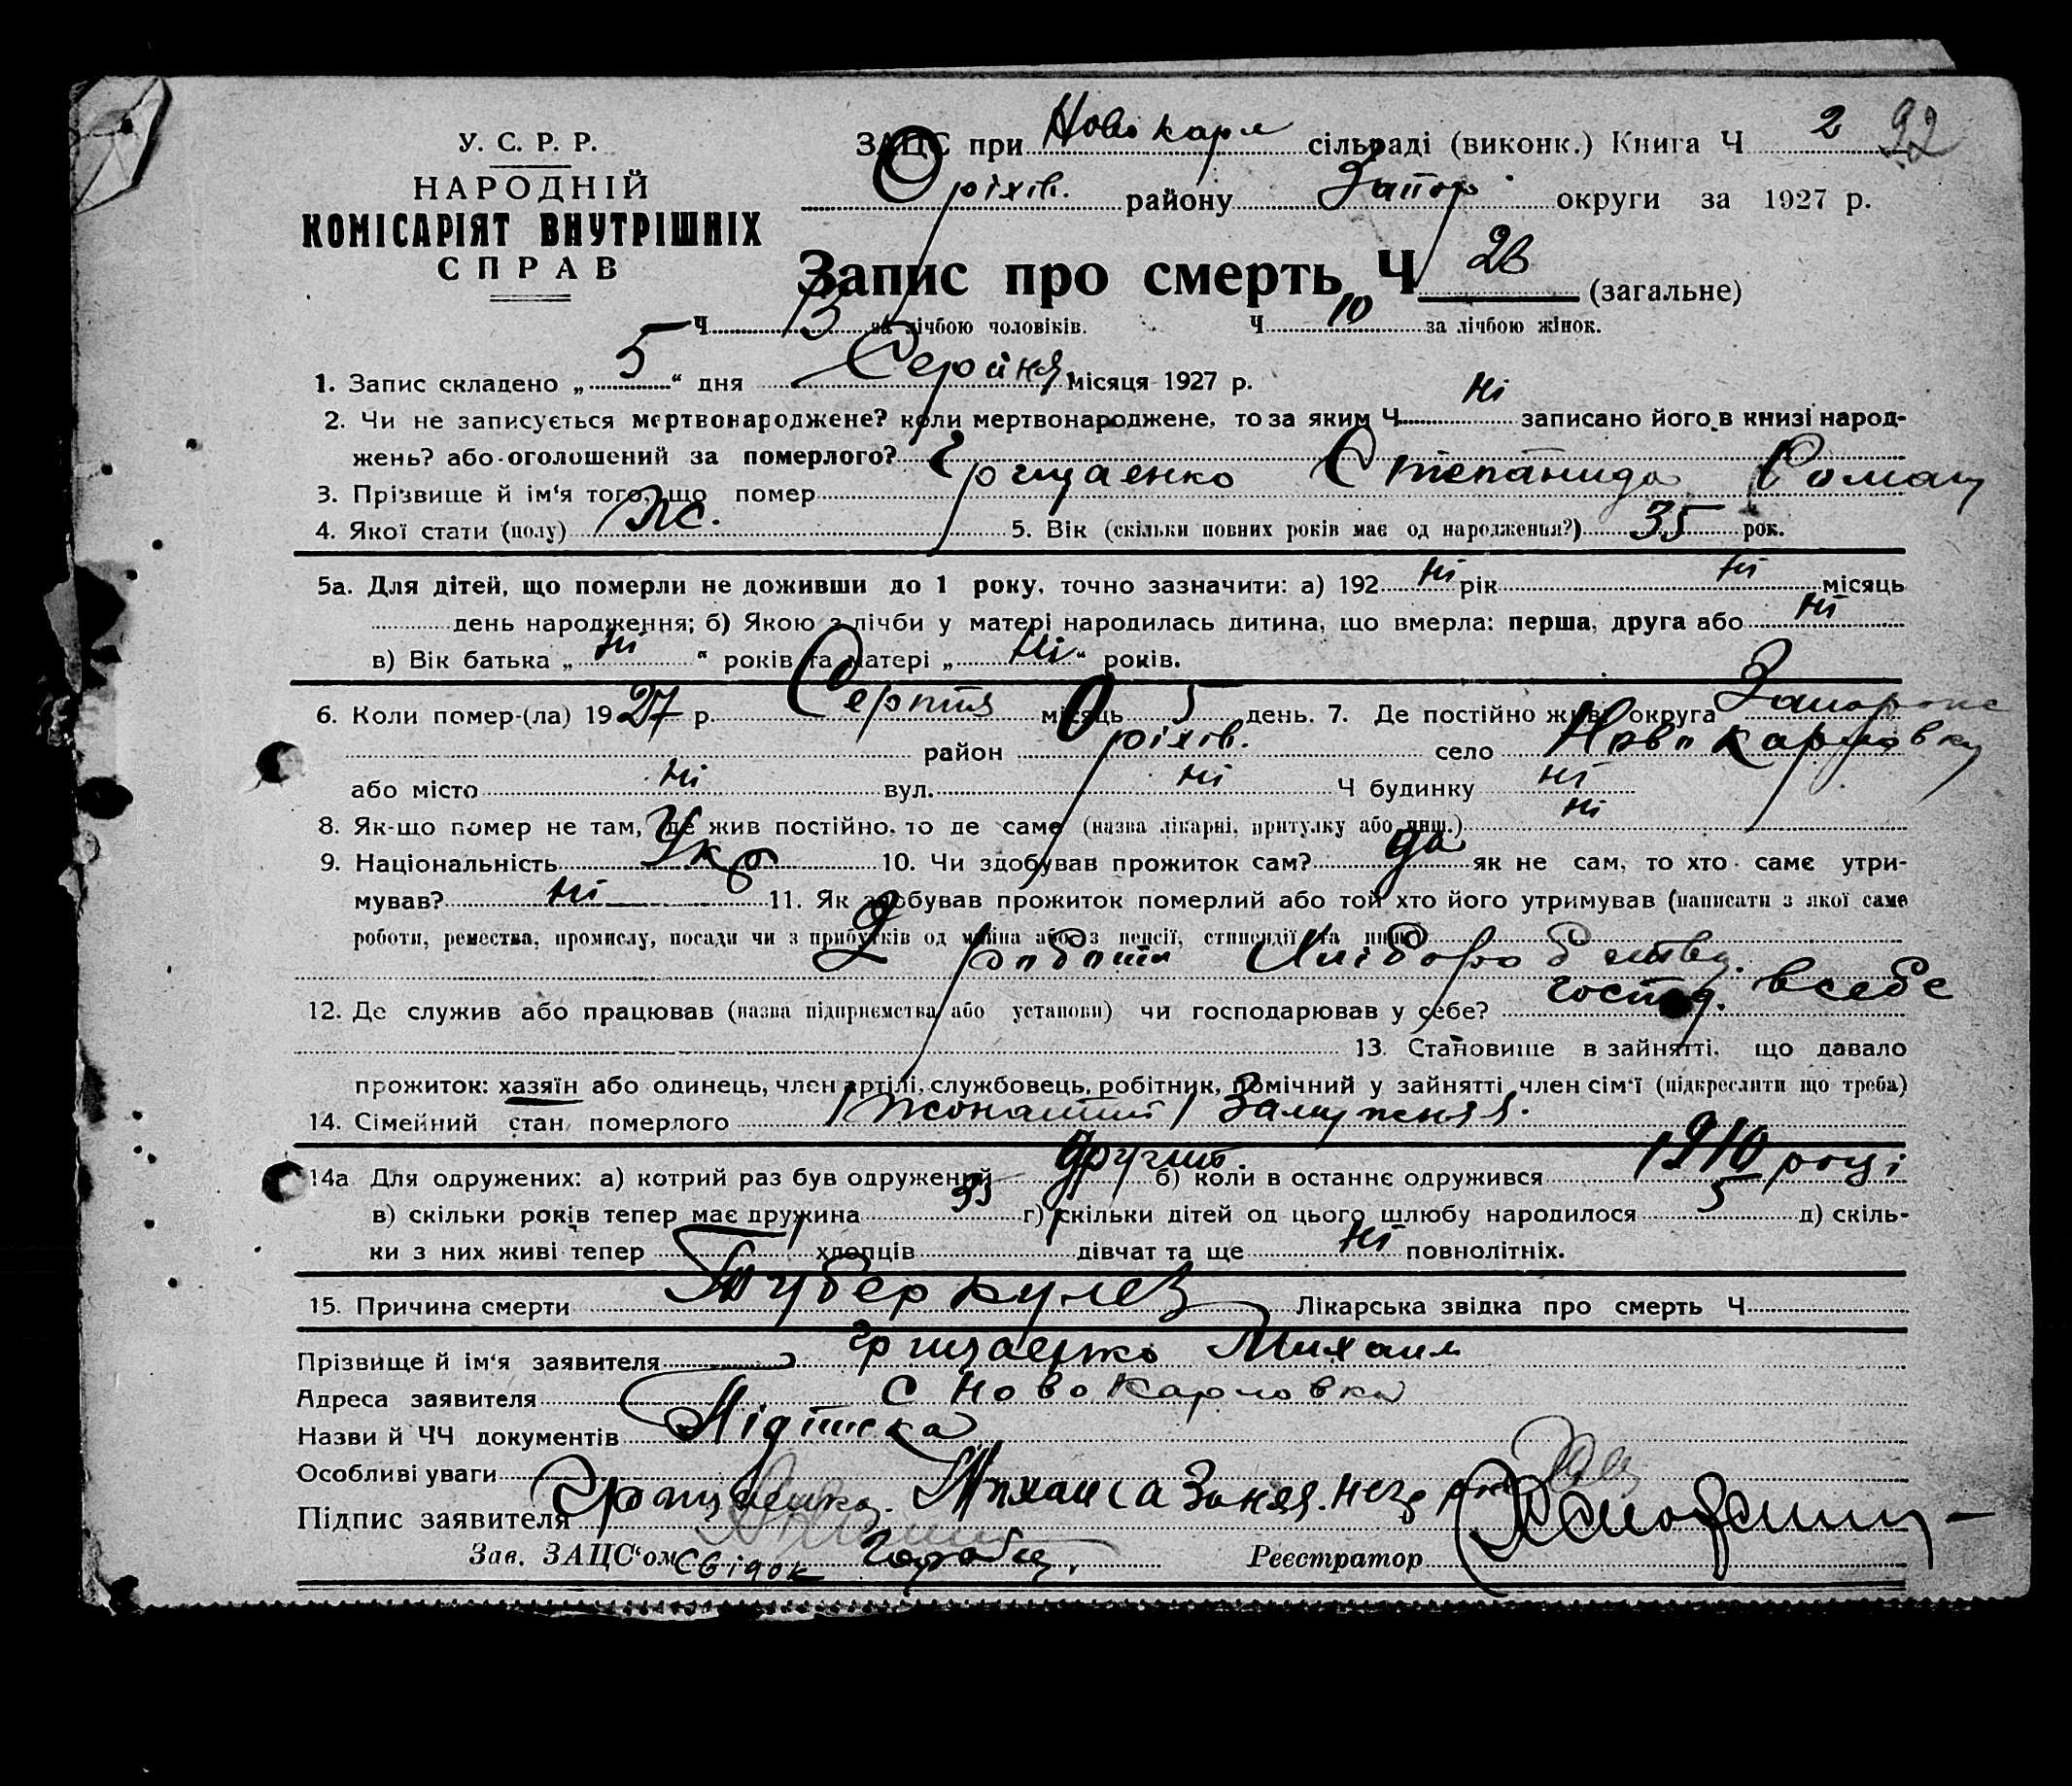 У. С. Р. Р.
НАРОДНІЙ
КОМІСАРІЯТ ВНУТРІШНІХ
СПРАВ
ЗАЦС при Новокарл сільраді (виконк.) Книга Ч 2 92
Оріхів. району Запор округи за 1927 р.
Запис про смерть Ч 23 (загальне)
Ч 13 за лічбою чоловіків. Ч 10 за лічбою жінок.
1. Запис складено „ 5 “ дня Серпня місяця 1927 р.
2. Чи не записується мертвонароджене? коли мертвонароджене, то за яким Ч ні записано його в книзі народ-
жень? або оголошений за померлого?
3. Прізвище й ім‘я того, що помер Грищаенко Степанида Роман
4. Якої стати (полу) Ж. 5. Вік (скільки повних років має од народження?) 35 рок.
5а. Для дітей, що померли не доживши до 1 року, точно зазначити: а) 192 ні рік ні місяць
день народження; б) Якою з лічби у матері народилась дитина, що вмерла: перша, друга або ні
в) Вік батька „ ні “ років та матері „ ні “ років.
6. Коли помер-(ла) 1927 р. Серпня місяць 5 день. 7. Де постійно жив: округа Запорожс
район Оріхів. село Новокарловку
або місто ні вул. ні Ч будинку ні
8. Як-що помер не там, де жив постійно, то де саме (назва лікарні, притулку або инш.) ні
9. Національність Укр 10. Чи здобував прожиток сам? да як не сам, то хто саме утри-
мував? ні 11. Як здобував прожиток померлий або той хто його утримував (написати з якої саме
роботи, ремества, промислу, посади чи з прибутків од майна або з пенсії, стипендії та инш.)
З работи Хлібороб ства.
12. Де служив або працював (назва підприємства або установи) чи господарював у себе? господ. в себе
13. Становище в зайнятті, що давало
прожиток: хазяїн або одинець, член артілі, службовець, робітник, помічний у зайнятті член сім‘ї (підкреслити що треба)
14. Сімейний стан померлого Замужняя.
14а Для одружених: а) котрий раз був одружений другий. б) коли в останнє одружився 1910 році
в) скільки років тепер має дружина г) скільки дітей од цього шлюбу народилося 5 д) скіль-
ки з них живі тепер хлопців дівчат та ще ні повнолітніх.
15. Причина смерти Туберкулез Лікарська звідка про смерть Ч
Прізвище й ім‘я заявителя Грищаенко Михаил
Адреса заявителя с Новокарловка
Назви й ЧЧ документів Підписка
Особливі уваги
Підпис заявителя Грищаенко Михаила За нея. незр
Зав. ЗАЦС‘ом Свідок Реєстратор